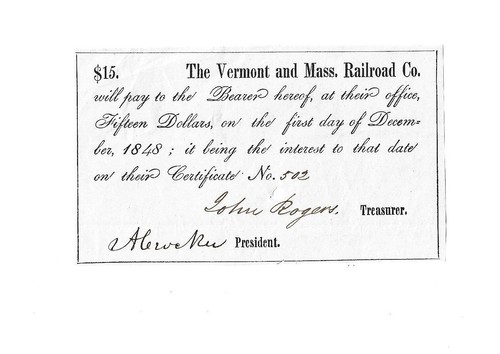 $15. The Vermont and Mass. Railroad Co.
will pay to the Bearer hereof, at their office,
Fifteen Dollars, on the first day of Decem-
ber, 1848; it being the interest to that date
on their Certificate No. 502
John Rogers. Treasurer.
President.